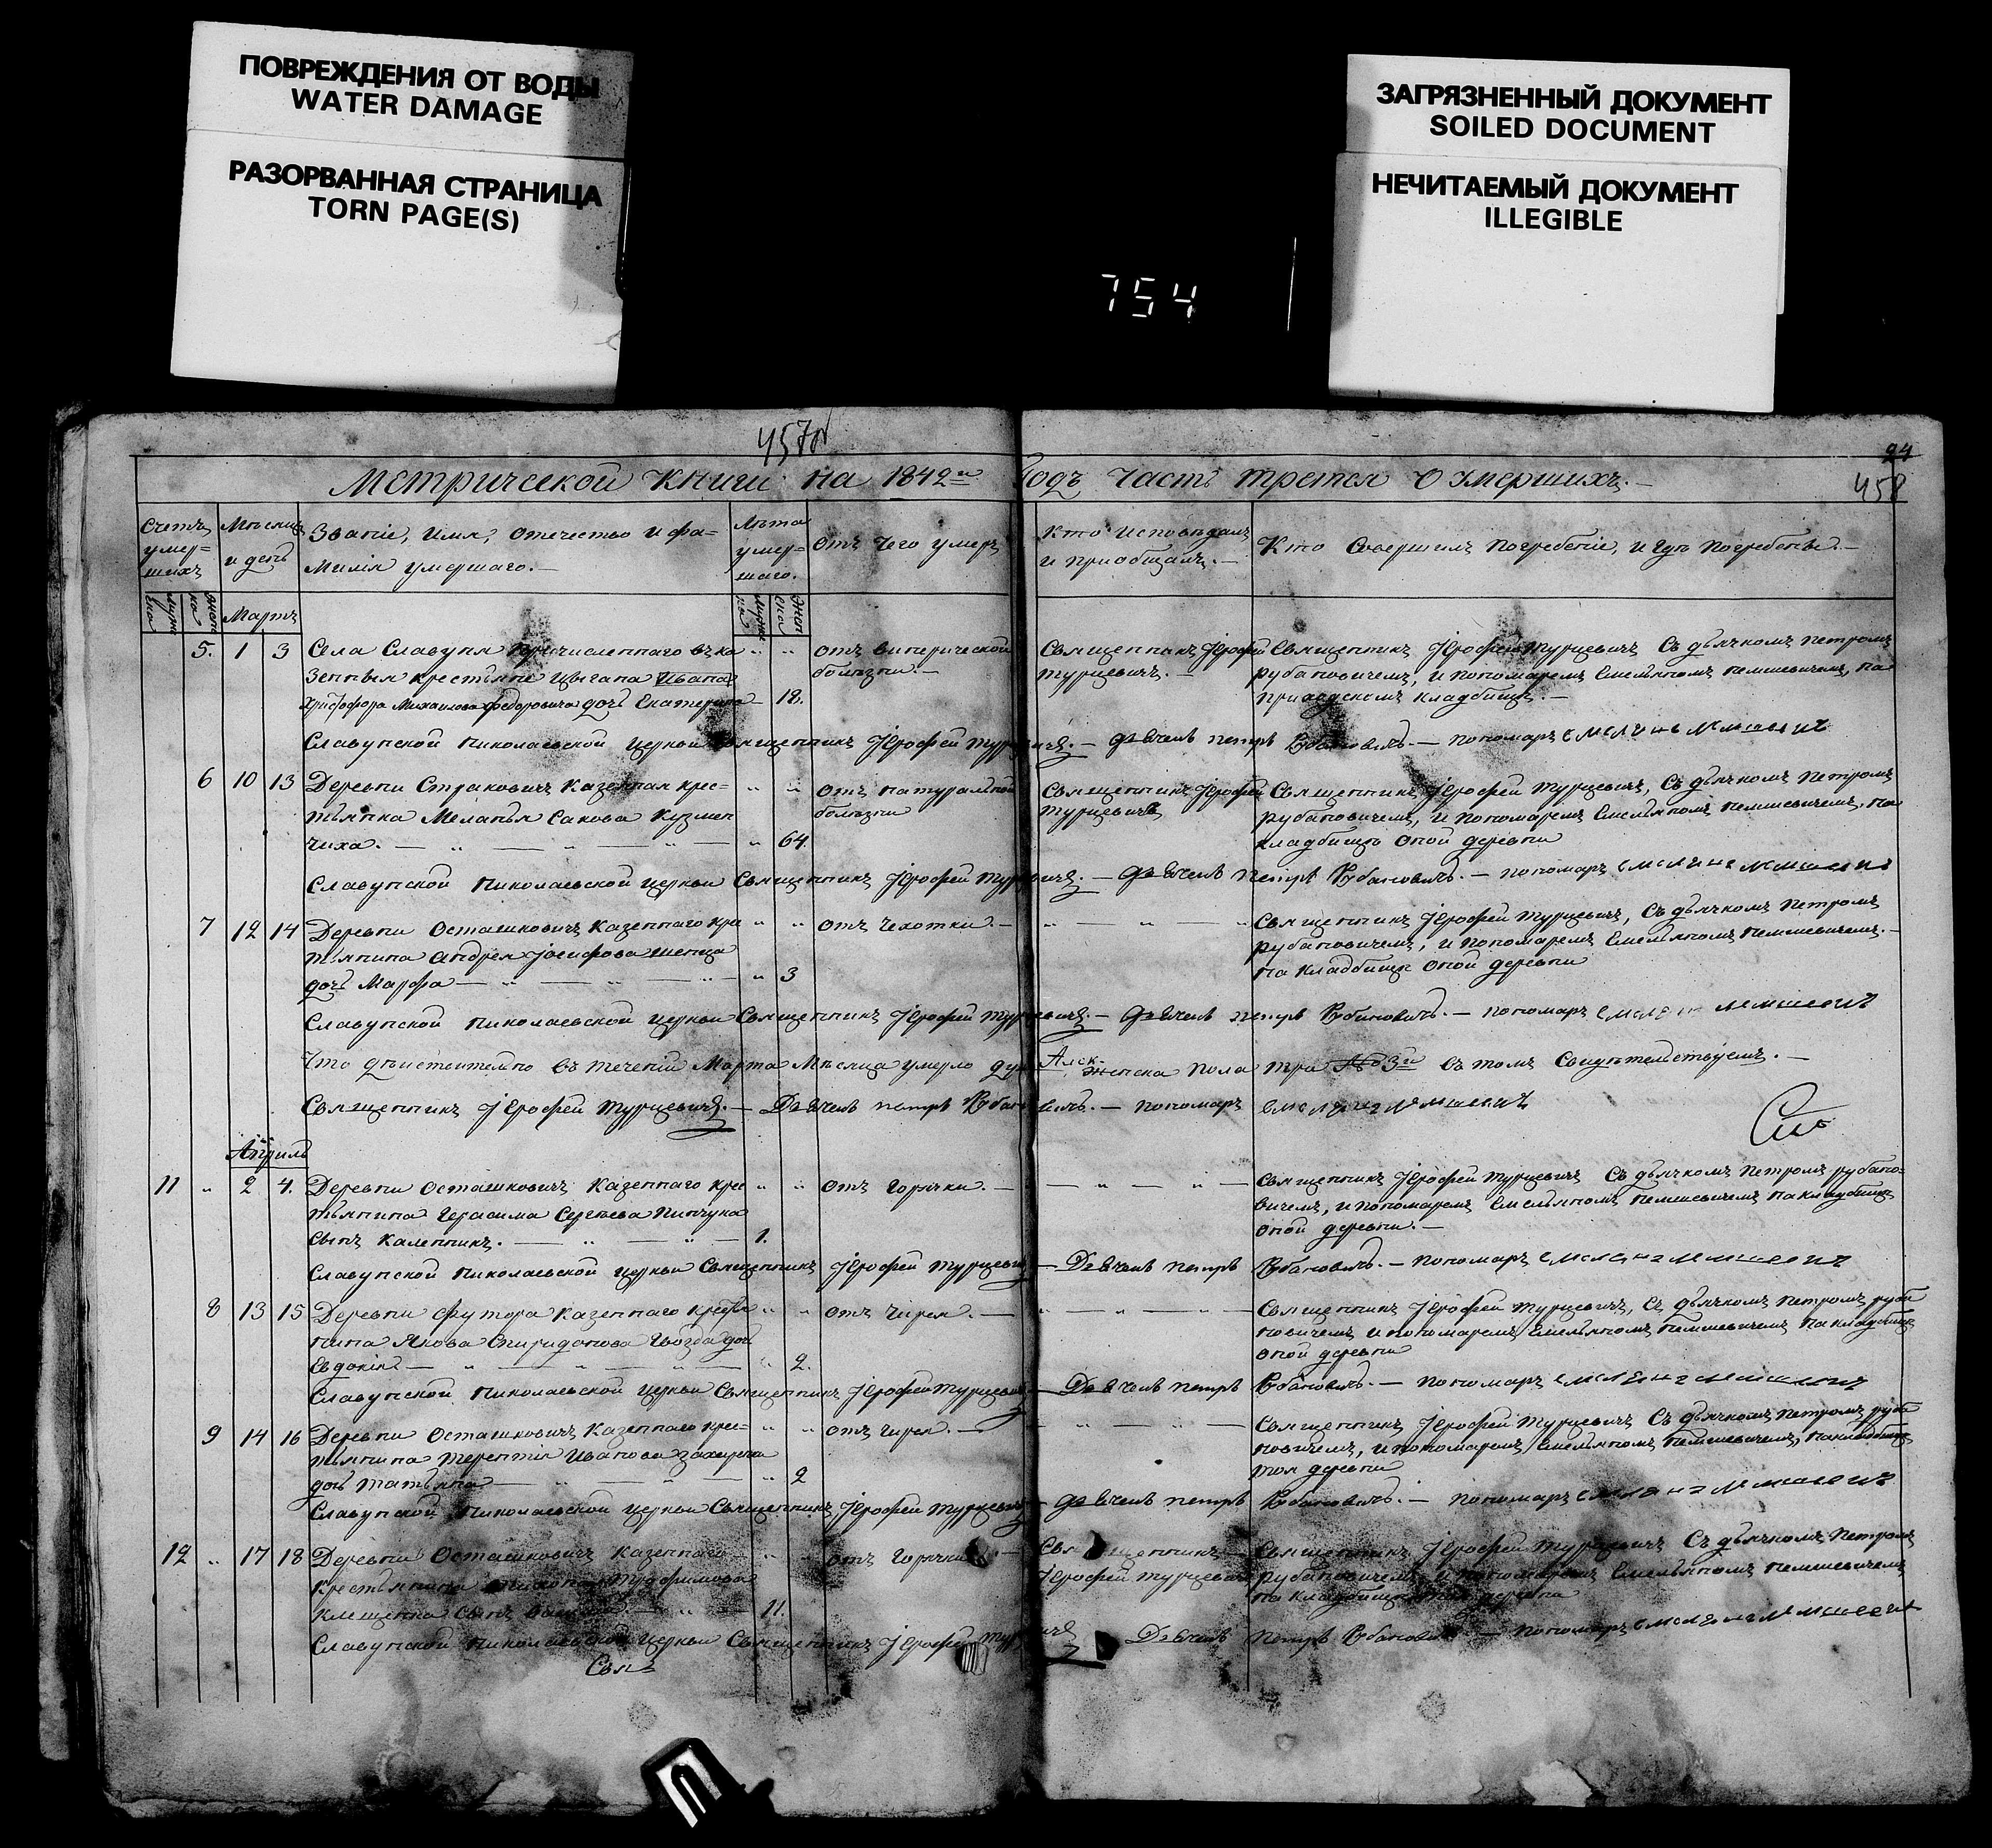 ПОВРЕЖДЕНИЯ ОТ ВОДЫ
WATER DAMAGE
РАЗОРВАННАЯ СТРАНИЦА
TORN PAGE(S)
ЗАГРЯЗНЕННЫЙ ДОКУМЕНТ
SOILED DOCUMENT
НЕЧИТАЕМЫЙ ДОКУМЕНТ
ILLEGIBLE
754
457
24
458
Метрической Книги на 1842й Годъ Часть третья О Умершихъ.
Счетъ умер=шихъ
Мѣсяцъ и день
Званіе, имя, отечество и фа=
милія умершаго.
Лѣта умер=шаго.
Отъ чего умеръ
Кто исповѣдалъ
и приобщалъ.
Кто совершилъ погребеніе, и гдѣ погребены.
Мартъ
5. 1 3 Села Славупя причисленнаго въ ка
зенныя крестьяне цыгана Ивана
Христофора Михаилова Федоровича дочь Екатерина 18.
отъ венерической
болезни.
Священникъ Іерофей
Турцевичъ.
Священникъ Іерофей Турцевичъ Съ дьячкомъ Петромъ
Рубановичемъ, и пономаремъ Емельяномъ Немшевичемъ, на
приходскомъ кладбищѣ.
Славупской Николаевской Церкви Священникъ Іерофей Турцевичъ. — Дьячекъ Петръ Рубановичъ. — Пономарь Емелянъ Немшевичъ
6 10 13 Деревни Страковичъ Казенная крес=
тьянка Меланья Сакова Кузмен
чиха. 64.
отъ натуральной
болѣзни
Священникъ Іерофей
Турцевичъ
Священникъ Іерофей Турцевичъ, Съ дьячкомъ Петромъ
Рубановичемъ, и пономаремъ Емельяномъ Немшевичемъ, на
кладбищѣ оной деревни
Славупской Николаевской Церкви Священникъ Іерофей Турцевичъ. — Дьячекъ Петръ Рубановичъ. — Пономарь Емелянъ Немшевичъ
7 12 14 Деревни Осташковичъ Казеннаго кре
тьянина Андрея Іосифова Шевца
дочь Марфа 3
отъ чехотки.
Священникъ Іерофей Турцевичъ, Съ дьячкомъ Петромъ
Рубановичемъ, и пономаремъ Емельяномъ Немшевичемъ.
на кладбищѣ оной деревни
Славупской Николаевской Церкви Священникъ Іерофей Турцевичъ. — Дьячекъ Петръ Рубановичъ. — Пономарь Емелянъ Немшевичъ
Что дѣйствительно въ теченіи Марта Мѣсяца умерло душъ женска пола три № 3й въ томъ Свидѣтельствуемъ.
Священникъ Іерофей Турцевичъ. — Дьячекъ Петръ Рубановичъ. — Пономарь Емелянъ Немшевичъ
Апрѣль
11 2 4. Деревни Осташковичъ Казеннаго крес
тьянина Герасима Сергѣева Пинчука
сынъ Каленникъ. 1.
отъ горячки.
Священникъ Іерофей Турцевичъ Съ дьячкомъ Петромъ Рубано=
вичемъ, и пономаремъ Емельяномъ Немшевичемъ на кладбищѣ
оной деревни.
Славупской Николаевской Церкви Священникъ Іерофей Турцевичъ — Дьячекъ Петръ Рубановичъ. — Пономарь Емелянъ Немшевичъ
8 13 15 Деревни Футора Казеннаго крестья
нина Якова Спиридонова Гвозда дочь
Евдокія 2.
отъ чирея.
Священникъ Іерофей Турцевичъ, Съ дьячкомъ Петромъ Руба
новичемъ и пономаремъ Емельяномъ Немшевичемъ на кладбищѣ
оной деревни
Славупской Николаевской Церкви Священникъ Іерофей Турцевичъ — Дьячекъ Петръ Рубановичъ. — Пономарь Емелянъ Немшевичъ
9 14 16 Деревни Осташковичъ Казеннаго крес=
тьянина Терентія Иванова
дочь Татьяна 2
отъ чирея.
Священникъ Іерофей Турцевичъ Съ дьячкомъ Петромъ Руба
новичемъ, и пономаремъ Емельяномъ Немшевичемъ, на кладбищѣ
тоя деревни
Славупской Николаевской Церкви Священникъ Іерофей Турцевичъ — Дьячекъ Петръ Рубановичъ. — Пономарь Емелянъ Немшевичъ
12 17 18 Деревни Осташковичъ Казеннаго
Крестьянина Трофимова
Клещенка сынъ 11.
отъ горячки
Священникъ
Іерофей Турцевичъ
Священникъ Іерофей Турцевичъ Съ дьячкомъ Петромъ
Рубановичемъ, и пономаремъ Емельяномъ Немшевичемъ
на кладбищѣ деревни
Славупской Николаевской Церкви Священникъ Іерофей Турцевичъ Дьячекъ Петръ Рубановичъ — Пономарь Емелянъ Немшевичъ